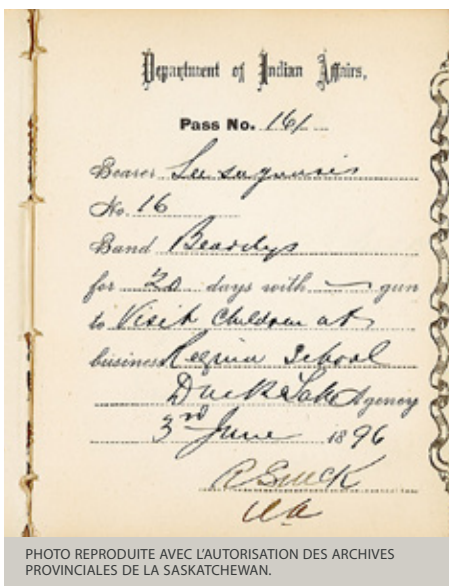 Department of Indian Affairs,
Pass No. 161
Bearer
No. 16
Band Beardys
for 20 days with — gun
to Visit Children at
business Regina School
Duck Lake Agency
3rd June 1896
PHOTO REPRODUITE AVEC L'AUTORISATION DES ARCHIVES
PROVINCIALES DE LA SASKATCHEWAN.